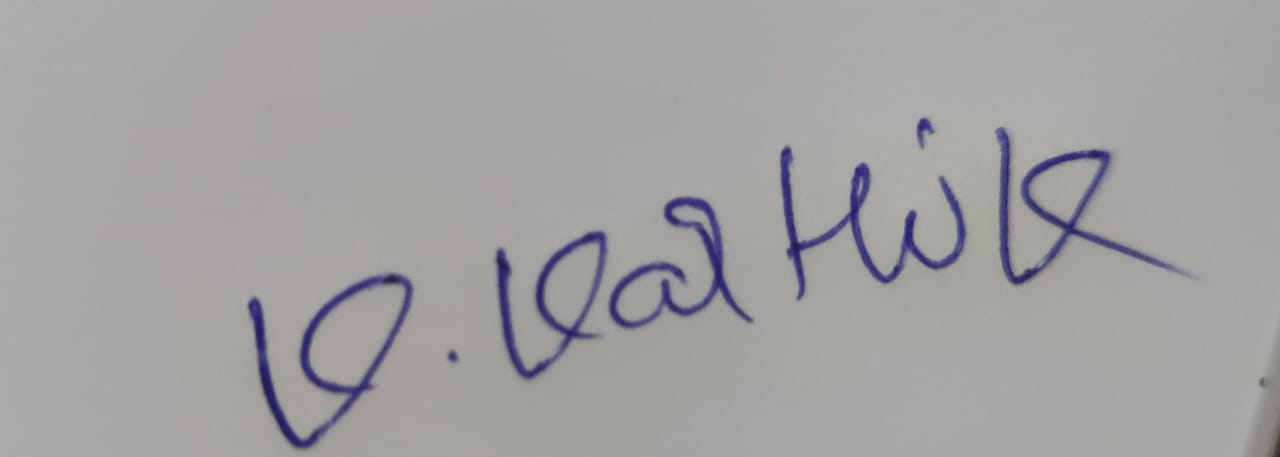 K. Karthik